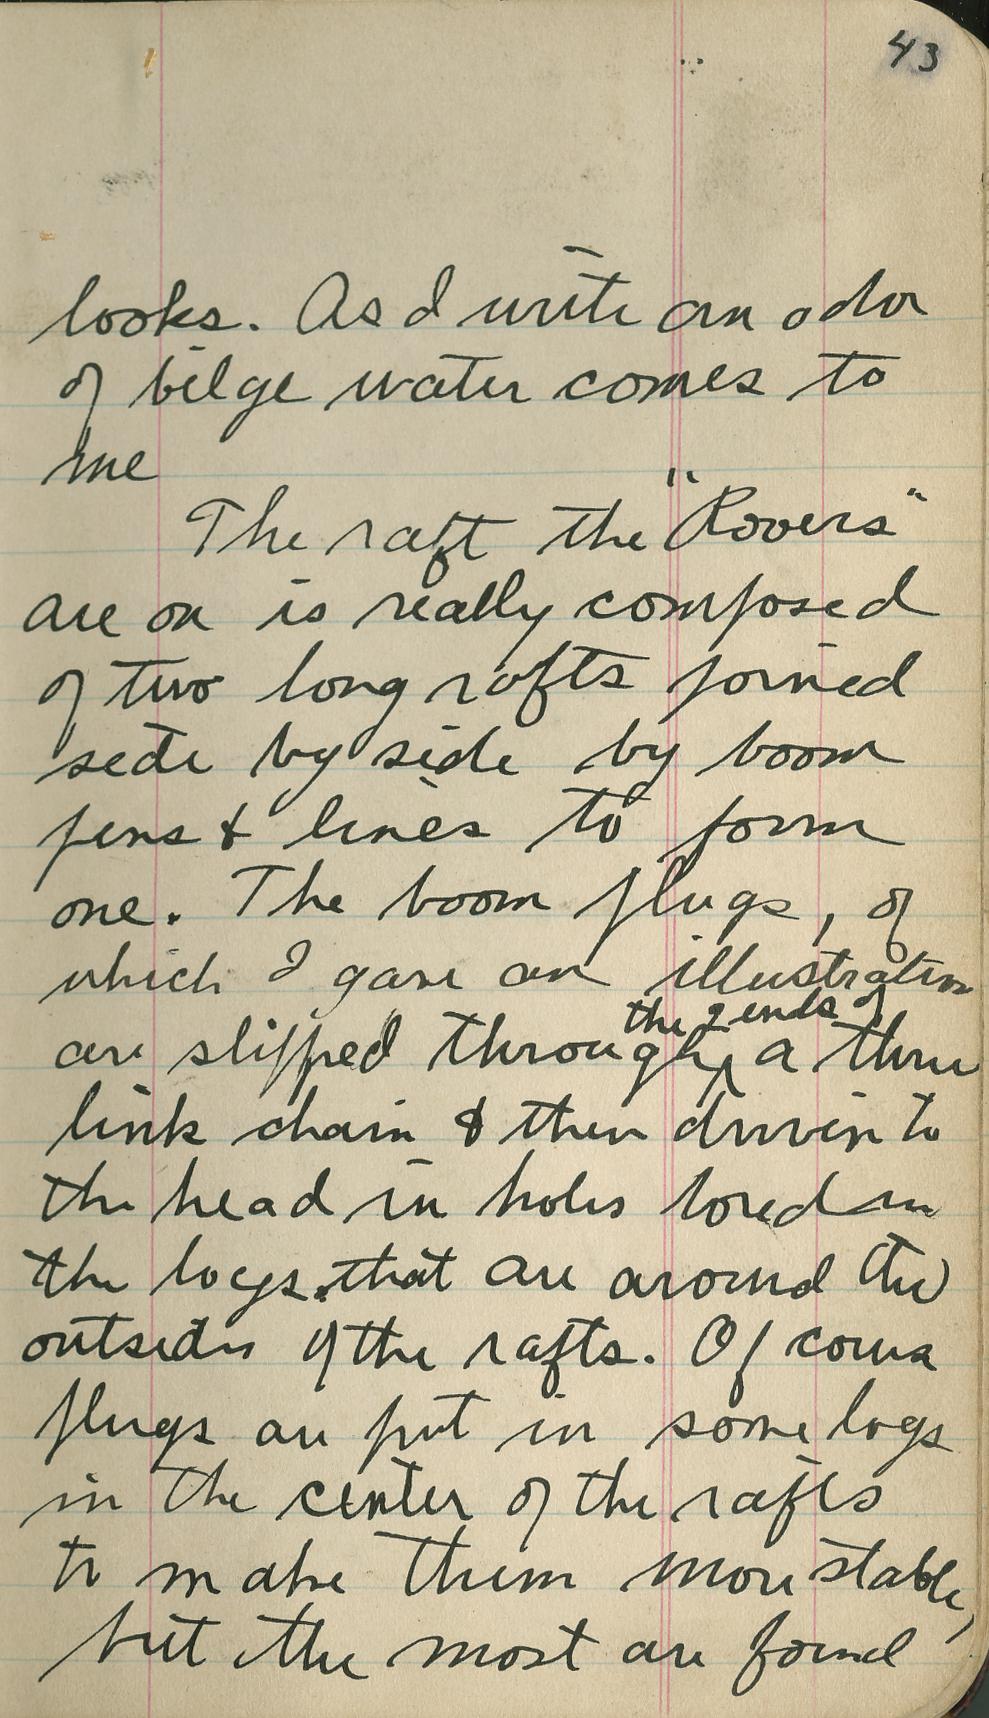 43
looks. As I write an odor
of bilge water comes to
me
The raft the "Rovers"
are on is really composed
of two long rafts joined
side by side by boom
pins & lines to form
one. The boom plugs, of
which I gave an illustration
the 2 ends of
are slipped through ^ a three
link chain & then driven to
the head in holes bored in
the logs that are around the
outsides of the rafts. Of course
plugs are put in some logs
in the center of the rafts
to make them more stable,
but the most are found